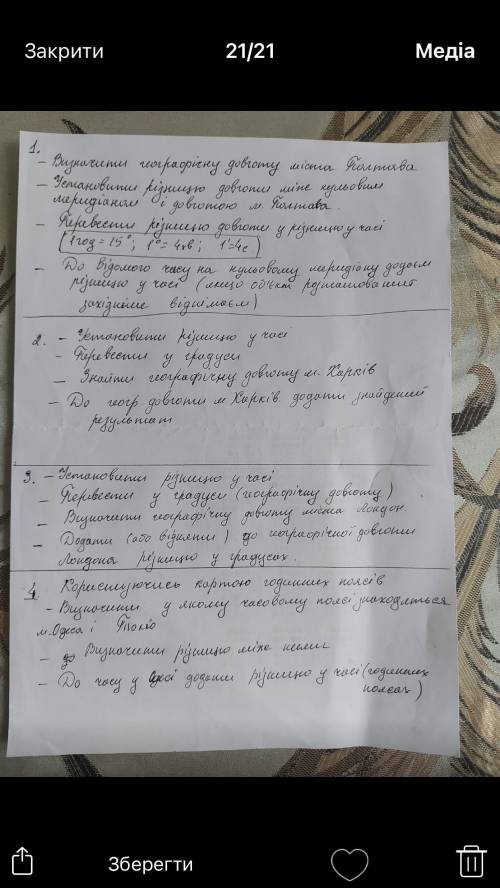 Закрити 21/21 Медіа
1.
- Визначити географічну довготу міста Полтава
- Установити різницю довготи між нульовим
меридіаном і довготою м. Полтава.
- Перевести різницю довготи у різницю у часі
(1год = 15°; 1° = 4хв; 1' = 4с)
- До відомого часу на нульовому меридіану додаєм
різницю у часі (якщо об'єкт розташований
західніше віднімаєм)
2. - Установити різницю у часі
- Перевести у градуси
- Знайти географічну довготу м. Харків
- До геогр. довготи м Харків додати знайдений
результат
3. - Установити різницю у часі
- Перевести у градуси (географічну довготу)
- Визначити географічну довготу міста Лондон.
- Додати (або відняти) до географічної довготи
Лондона різницю у градусах.
4 Користуючись картою годинних поясів
- Визначити у якому часовому поясі знаходяться
м. Одеса і Токіо
- Визначити різницю між ними
- До часу у Одесі додати різницю у часі (годинних
поясах)
Зберегти